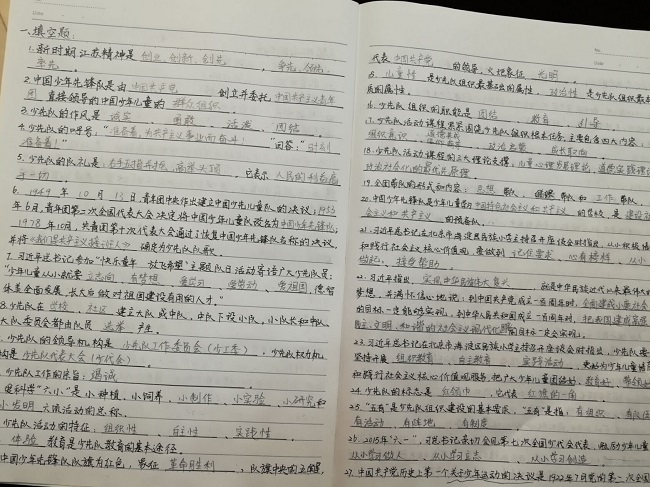 一、填空题:
1.新时期江苏精神是 创业、创新、创先 、 争先、领先、
率先 。
2.中国少年先锋队是由 中国共产党 创立并委托 中国共产主义青年
团 直接领导的中国少年儿童的 群众组织
3.少先队的作风是 诚实 、 勇敢 、 活泼 、 团结
4.少先队的呼号:"准备着,为共产主义事业而奋斗!" "回答:"时刻
准备着!"
5.少先队的队礼是:右手五指并拢,高举头顶 ,它表示 人民的利益高
于一切 。
6. 1949 年 10 月 13 日,青年团中央作出建立中国少年儿童队的决议;1953
年6月,青年团第二次全国代表大会决定将中国少年儿童队改名为中国少年先锋队;
1978年10月,共青团第十次代表大会通过了恢复中国少年先锋队名称的决议,
并将《我们是共产主义接班人》 确定为少先队队歌。
7.习近平总书记参加"快乐童年 放飞希望"主题队日活动寄语广大少先队员:
"少年儿童从小就要 立志向 、有梦想 、 爱学习 、 爱劳动 、 爱祖国,德智
体美全面发展,长大后做对祖国建设有用的人才。"
8.少先队在 学校 、 社区 建立大队或中队,中队下设小队,小队长和中队、
大队委员会都由队员 选举 产生。
少先队的领导机构是 少先队工作委员会(少工委) ,少先队权力机
构是 少先队代表大会(少代会) 。
少先队工作的宗旨: 竭诚
爱科学"六小"是小种植、小饲养 、 小制作 、 小实验 、小研究和
小发明 六项活动的总称。
少先队活动的特征: 组织性 、 自主性 、 实践性 。
体验 教育是少先队教育的基本途径。
中国少年先锋队队旗为红色,象征 革命胜利 ,队旗中央的五角星
代表 中国共产党 的领导,火把象征 光明 。
15. 儿童性 是少先队组织最基础的属性, 政治性 是少先队组织最本
质的属性。
16.少先队组织的职能是 团结 、 教育 、 引导
17.少先队活动课程紧紧围绕少先队组织根本任务,主要包含四大内容:
组织意识 、 道德养成 、 政治启蒙 、 成长取向
18.少先队活动课程的三大理论支撑:儿童心理发展理论、道德实践理论
政治社会化的最优化原理
19.全国带队的形式和内容: 思想 带队、 组织 带队和 工作 带队。
20.中国少年先锋队是少年儿童学习中国特色社会主义和共产主义 的学校,是建设社
会主义和共产主义 的预备队。
21.习近平总书记在北京市海淀民族小学主持召开座谈会时指出,从小积极培
和践行社会主义核心价值观,要做到 记住要求 、 心有榜样 、 从小
做起 、 接受帮助 。
22.习近平指出, 实现中华民族伟大复兴 就是中华民族近代以来最伟大的
梦想,并满怀信心地说:到中国共产党成立一百周年时,全面建成小康社会
的目标一定能够实现,到中华人民共和国成立一百周年时,把我国建成富强
民主、文明、和谐的社会主义现代化国家的目标一定会实现。
23.习近平总书记在北京市海淀民族小学主持召开座谈会时指出,少先队要
坚持开展 组织教育 、 自主教育 、 实践活动 ,更好为少年儿童培育
和践行社会主义核心价值观服务,把广大少年儿童团结好、教育好、带领好
24.少先队的标志是 红领巾 ,它代表 红旗的一角 。
25."五有"是少先队组织建设的基本要求,"五有"是指:有组织 、有队伍、
有活动 、有阵地 、 有制度 。
26.2015年"六一",习总书记亲切会见第七次全国少代会代表,勉励少年儿童
从小学习做人 、 从小学习立志 、 从小学习创造 。
27.中国共产党历史上第一个关于少年运动的决议是1922年7月党的第二次全国